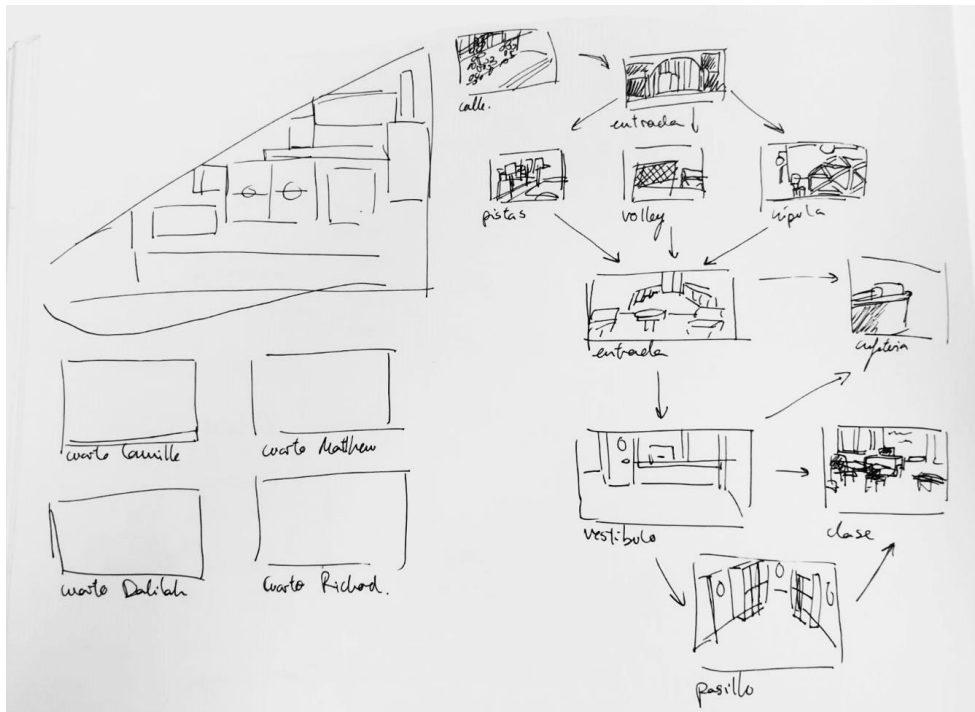 calle.
entrada
pistas
volley
cúpula
entrada
cafeteria
vestibulo
clase
pasillo
cuarto Camille
cuarto Matthew
cuarto Dalilah
cuarto Richard.